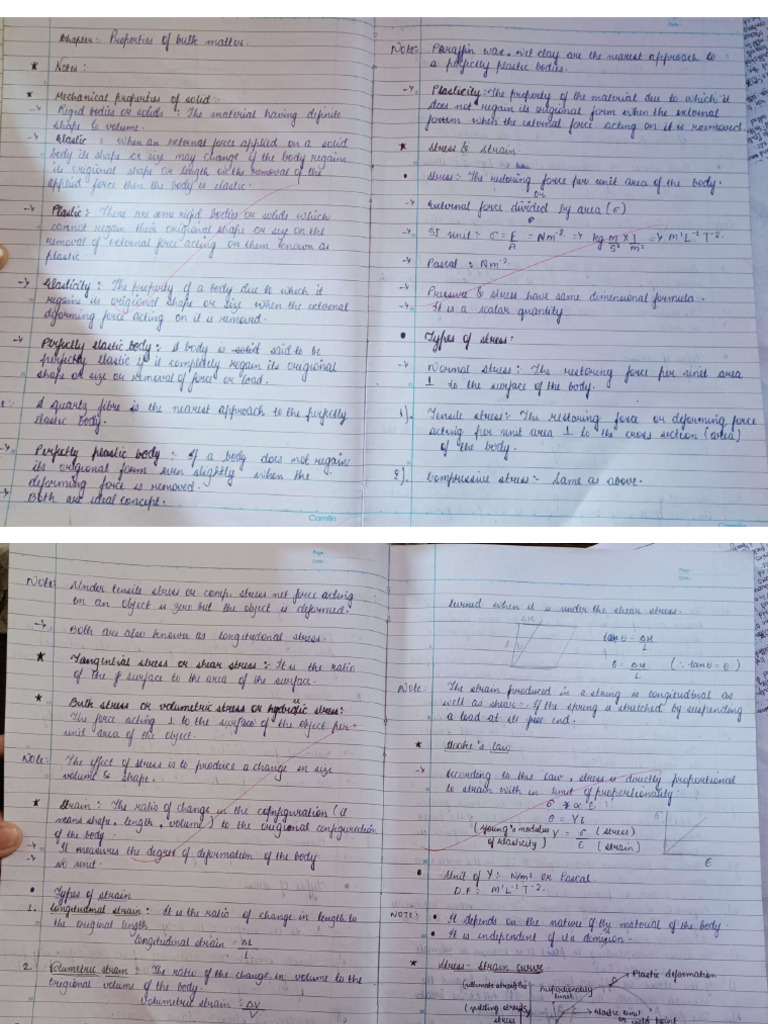 Chapter:- Properties of bulk matter.
* Notes :-
* Mechanical properties of solid :-
→ Rigid bodies or solids : The material having definite
shape & volume.
→ Elastic : When an external force applied on a solid
body its shape or size may change if the body regain
its origional shape or length on the removal of the
applied force then the body is elastic.
→ Plastic : There are some rigid bodies or solids which
cannot regain their origional shape or size on the
removal of external force acting on them known as
plastic
→ Elasticity : The property of a body due to which it
regains its origional shape or size when the external
deforming force acting on it is removed.
→ Perfectly elastic body : A body is solid said to be
perfectly elastic if it completely regain its origional
shape or size or removal of force or load.
A quartz fibre is the nearest approach to the perfectly
elastic body.
→ Perfectly plastic body : If a body does not regain
its origional form even slightly when the
deforming force is removed.
→ Both are ideal concept.
Camlin
Note:- Paraffin wax, wet clay are the nearest approach to
a perfectly plastic bodies.
→ Plasticity : The property of the material due to which it
does not regain its origional form when the external
when the external force acting on it is removed.
* Stress & Strain.
• Stress : The restoring force per unit area of the body.
or
→ External force divided by area (σ)
→ SI unit : σ = F/A = Nm⁻² ⇒ kg m/s² × 1/m² ⇒ M¹L⁻¹T⁻².
→ Pascal : Nm⁻².
→ Pressure & stress have same dimensional formula.
→ It is a scalar quantity
• Types of stress :
→ Normal stress : The restoring force per unit area
⊥ to the surface of the body.
1). Tensile stress :- The restoring force or deforming force
acting per unit area ⊥ to the cross section (area)
of the body.
2). Compressive stress :- Same as above.
Page :
Date :
Note: Under tensile stress or comp. stress net force acting
on an object is zero but the object is deformed.
→ Both are also known as longitudional stress.
* Tangential stress or shear stress : It is the ratio
of the surface to the area of the surface.
* Bulk stress or volumetric stress or hydraulic stress:
The force acting ⊥ to the surface of the object per
unit area of the object.
Note: The effect of stress is to produce a change in size
volume & shape.
* Strain : The ratio of change in the configuration (it
means shape, length, volume) to the origional configuration
of the body.
→ It measures the degree of deformation of the body.
→ No unit.
• Types of strain
1. Longitudinal strain : It is the ratio of change in length to
the original length
longitudinal strain = ΔL/L
2. Volumetric strain : The ratio of the change in volume to the
origional volume of the body.
Volumetric strain = ΔV/V
Page :
Date :
turned when it is under the shear stress.
tanθ = ΔL/L
θ = ΔL/L (∵ tanθ = θ)
Note: The strain produced in a string is longitudinal as
well as shear :- If the spring is stretched by suspending
a load at its free end.
* Hooke's law
→ According to this law, stress is directly proportional
to strain with in limit of proportionality:
σ ∝ ε
σ = Yε
(Young's modulus of elasticity) Y = σ/ε (stress)/(strain)
σ
ε
• Unit of Y : N/m² or Pascal.
D.F : M¹L⁻¹T⁻².
NOTE: • It depends on the nature of the material of the body
• It is independent of its dimension.
* Stress - Strain curve
→ Plastic deformation
(ultimate stress)
Proportionality limit
(splitting stress)
stress
→ elastic limit
or yield point